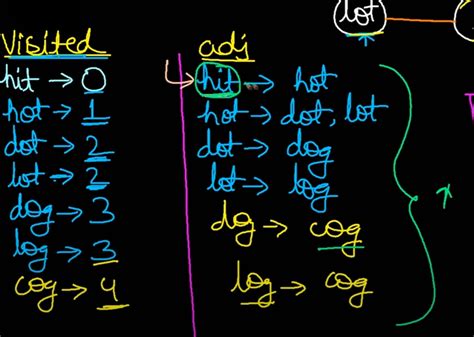 lot
Visited
hit → 0
hot → 1
dot → 2
lot → 2
dog → 3
log → 3
cog → 4
adj
hit → hot
hot → dot, lot
dot → dog
lot → log
dg → cog
log → cog